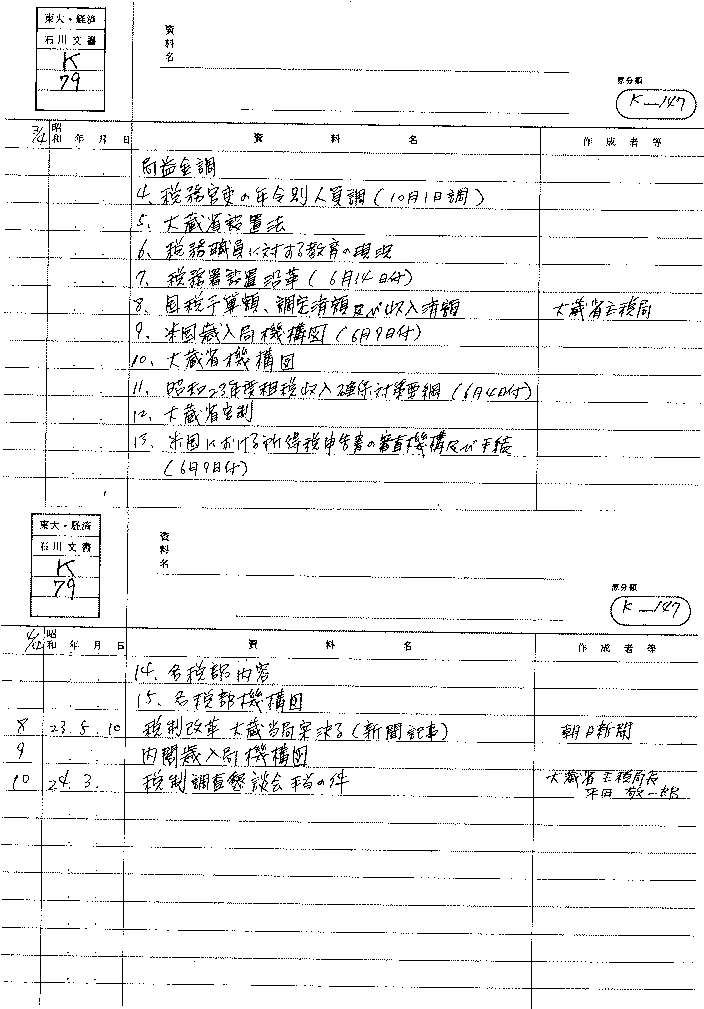 東大・経済
石川文書
K
79
資料名
原分類
K-147
3/4 昭和 年 月 日 資料名 作成者等
4. 税務官吏の年令別人員調(10月1日調)
5. 大蔵省設置法
6. 税務職員に対する教育の現況
7. 税務署設置沿革(6月14日付)
8. 国税予算額、調定済額及び収入済額 大蔵省主税局
9. 米国歳入局機構図(6月9日付)
10. 大蔵省機構図
11. 昭和23年度租税収入確保対策要綱(6月4日付)
12. 大蔵省官制
13. 米国における所得税申告書の審査機構及び手続
(6月9日付)
東大・経済
石川文書
K
79
資料名
原分類
K-147
昭和 年 月 日 資料名 作成者等
14. 各税部内容
15. 各税部機構図
8 23. 5. 10 税制改革 大蔵当局案決る(新聞記事) 朝日新聞
9 内国歳入局機構図
10 24. 3. 税制調査懇談会 の件 大蔵省主税局長
平田 敬一郎